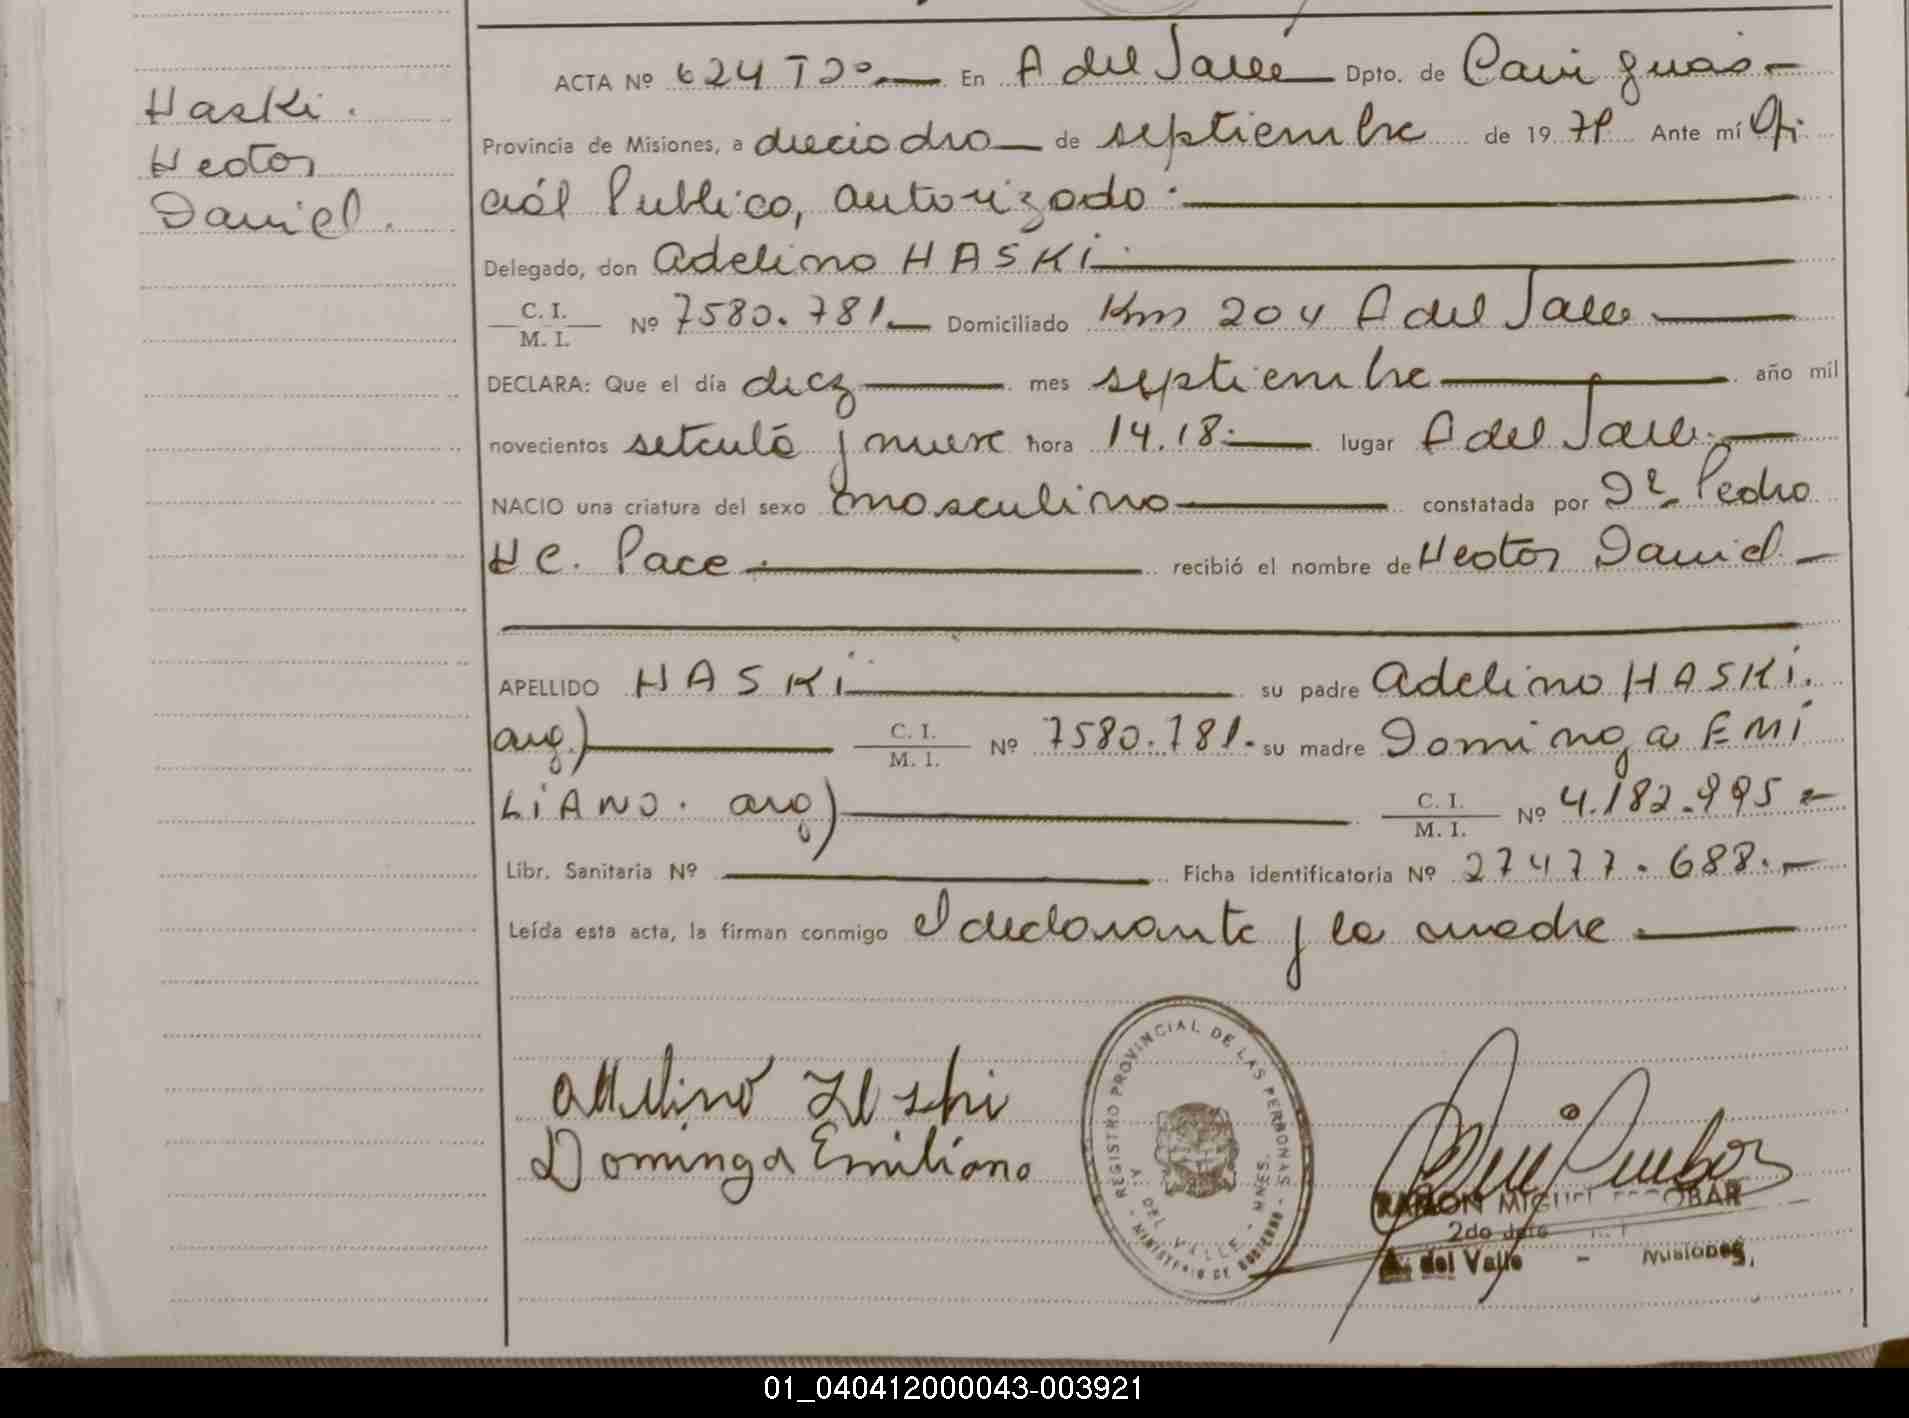 Haski.
Hector
Daniel.
ACTA Nº 624 Tº 2º En A del Valle Dpto. de Cainguás
Provincia de Misiones, a dieciocho de septiembre de 1979 Ante mí Ofi
cial Publico, autorizado.
Delegado, don Adelino HASKi.
C. I.
M. I. Nº 7580.781. Domiciliado Km 204 A del Valle
DECLARA: Que el día diez mes septiembre año mil
novecientos setenta y nueve hora 14.18. lugar A del Valle.
NACIO una criatura del sexo masculino constatada por Dr Pedro
H C. Pace. recibió el nombre de Hector Daniel.
APELLIDO HASKi su padre Adelino HASKi.
arg.) C. I.
M. I. Nº 7580.781. su madre Dominga EMi
LiANO. arg) C. I.
M. I. Nº 4.182.995
Libr. Sanitaria Nº Ficha identificatoria Nº 27477.688.
Leída esta acta, la firman conmigo el declarante y la madre
Adelino Haski
Dominga Emiliano
REGISTRO PROVINCIAL DE LAS PERSONAS - MINISTERIO DE GOBIERNO -
A. DEL VALLE - MNES.
RAMON MIGUEL ESCOBAR
2do Jefe
A. del Valle - Misiones.
01_040412000043-003921